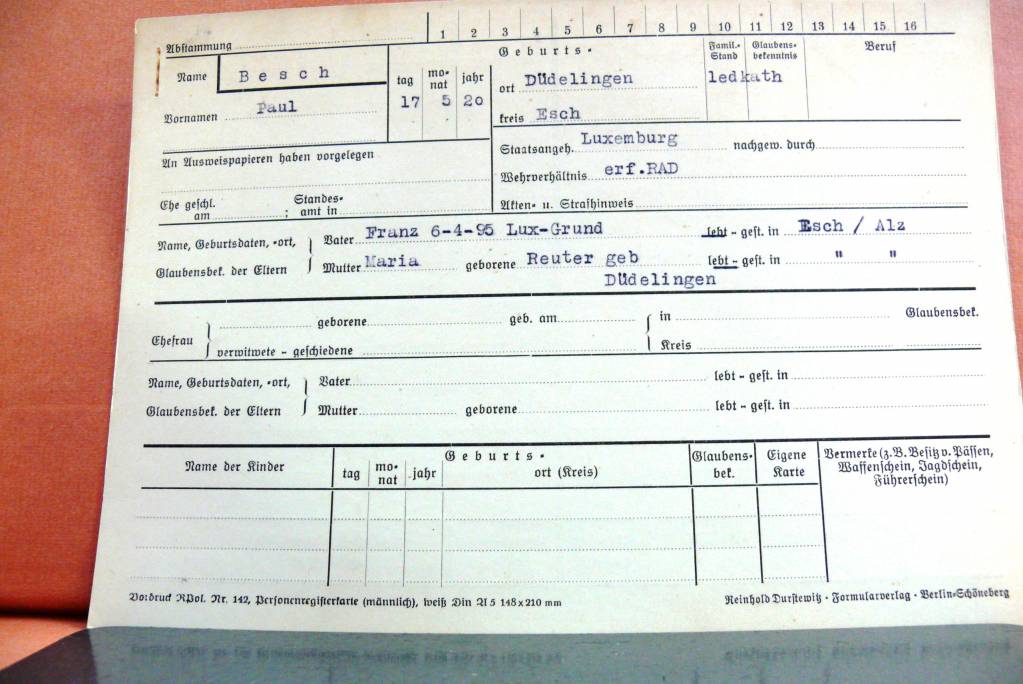 1 2 3 4 5 6 7 8 9 10 11 12 13 14 15 16
Abstammung
Name Besch
Vornamen Paul
tag monat jahr
17 5 20
Geburts-
ort Düdelingen
kreis Esch
Famil.-Stand
led
Glaubens-bekenntnis
kath
Beruf
Staatsangeh. Luxemburg nachgew. durch
Wehrverhältnis erf.RAD
Akten- u. Strafhinweis
An Ausweispapieren haben vorgelegen
Ehe geschl. am ; Standes-amt in
Name, Geburtsdaten, -ort,
Glaubensbek. der Eltern
Vater Franz 6-4-95 Lux-Grund lebt - gest. in Esch / Alz
Mutter Maria geborene Reuter geb lebt - gest. in " "
Düdelingen
Ehefrau geborene geb. am in Glaubensbek.
verwitwete - geschiedene Kreis
Name, Geburtsdaten, -ort,
Glaubensbek. der Eltern
Vater lebt - gest. in
Mutter geborene lebt - gest. in
Name der Kinder
Geburts-
tag monat jahr ort (Kreis)
Glaubens-bek.
Eigene Karte
Vermerke (z.B. Besitz v. Pässen,
Waffenschein, Jagdschein,
Führerschein)
Vordruck RPol. Nr. 142, Personenregisterkarte (männlich), weiß Din A 5 148 x 210 mm
Reinhold Durstewitz · Formularverlag · Berlin-Schöneberg